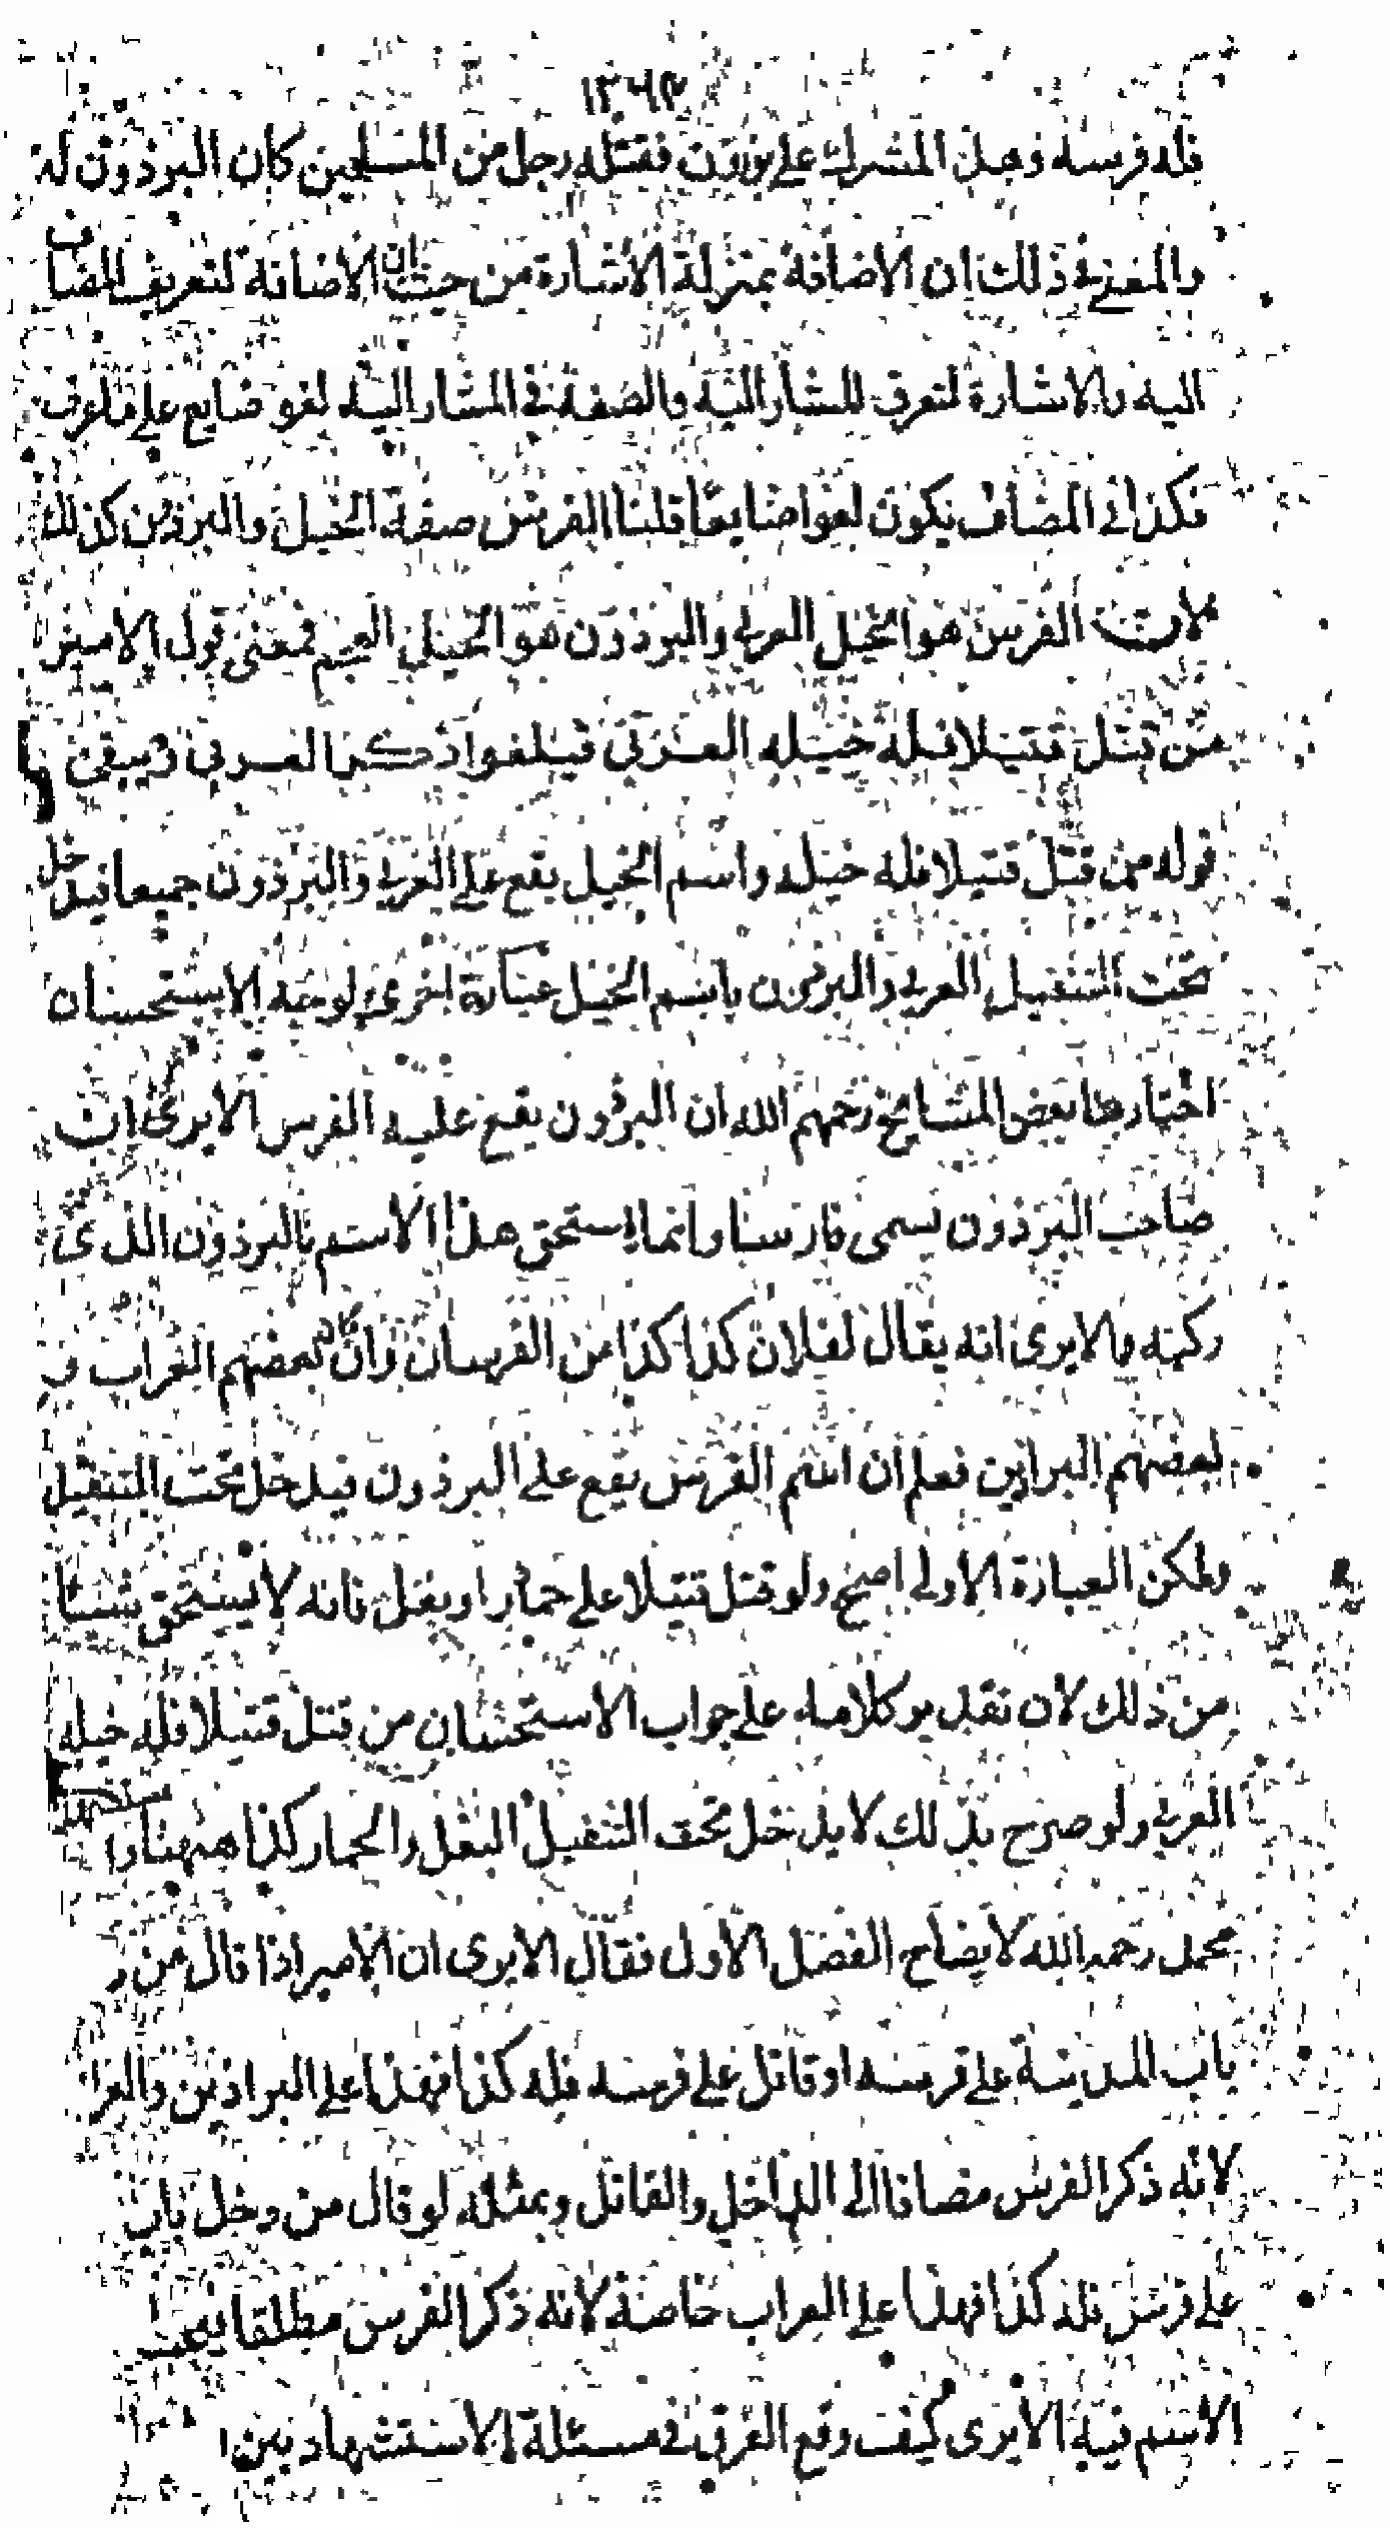 ١٢٦٢
فله فرسه وجل المشرك على برذون فقتله رجل من المسلمين كان البرذون له
والمعنى في ذلك ان الاضافة بمنزلة الاشارة من حيث ان الاضافة لتعريف المضاف
اليه والاشارة لتعرف المشار اليه والصفة في المشار اليه لغو ضايع على ما عرف
فكذا في المضاف يكون لغوا ضايعا قلنا الفرس صفة الخيل والبرذون كذلك
لان الفرس هو الخيل العربي والبرذون هو الخيل العجم فمعنى قول الامير
من قتل قتيلا فله خيله العربي فيلغوا ذكر العربي ويبقى
قوله من قتل قتيلا فله خيله واسم الخيل يقع على العربي والبرذون جميعا فيدخل
تحت التنفيل العربي والبرذون باسم الخيل عبارة اخرى لوجه الاستحسان
اختارها بعض المشايخ رحمهم الله ان البرذون يقع عليه الفرس الا يرى ان
صاحب البرذون يسمى فارسا وانما استحق هذا الاسم بالبرذون الذي
ركبه والا يرى انه يقال لفلان كذا كذا من الفرسان وان كان لبعضهم العراب و
لبعضهم البراذين فعلم ان اسم الفرس يقع على البرذون فيدخل تحت التنفيل
ولكن العبارة الاولى اصح ولو قتل قتيلا على حمار او بغل فانه لا يستحق شيئا
من ذلك لان تقدير كلامه على جواب الاستحسان من قتل قتيلا فله خيله
العربي ولو صرح بذلك لا يدخل تحت التنفيل البغل والحمار كذا ههنا واستشهد
محمد رحمه الله لايضاح الفصل الاول فقال الا يرى ان الامير اذا قال من د
باب المدينة على فرسه او قاتل على فرسه فله كذا فهذا على البراذين والعرا
لانه ذكر الفرس مضافا الى الداخل والقاتل وبمثله لو قال من دخل باب
على فرس فله كذا فهذا على العراب خاصة لانه ذكر الفرس مطلقا
الاسم فيه الا يرى كيف وقع الفرق في مسئلة الاستشهاد بين